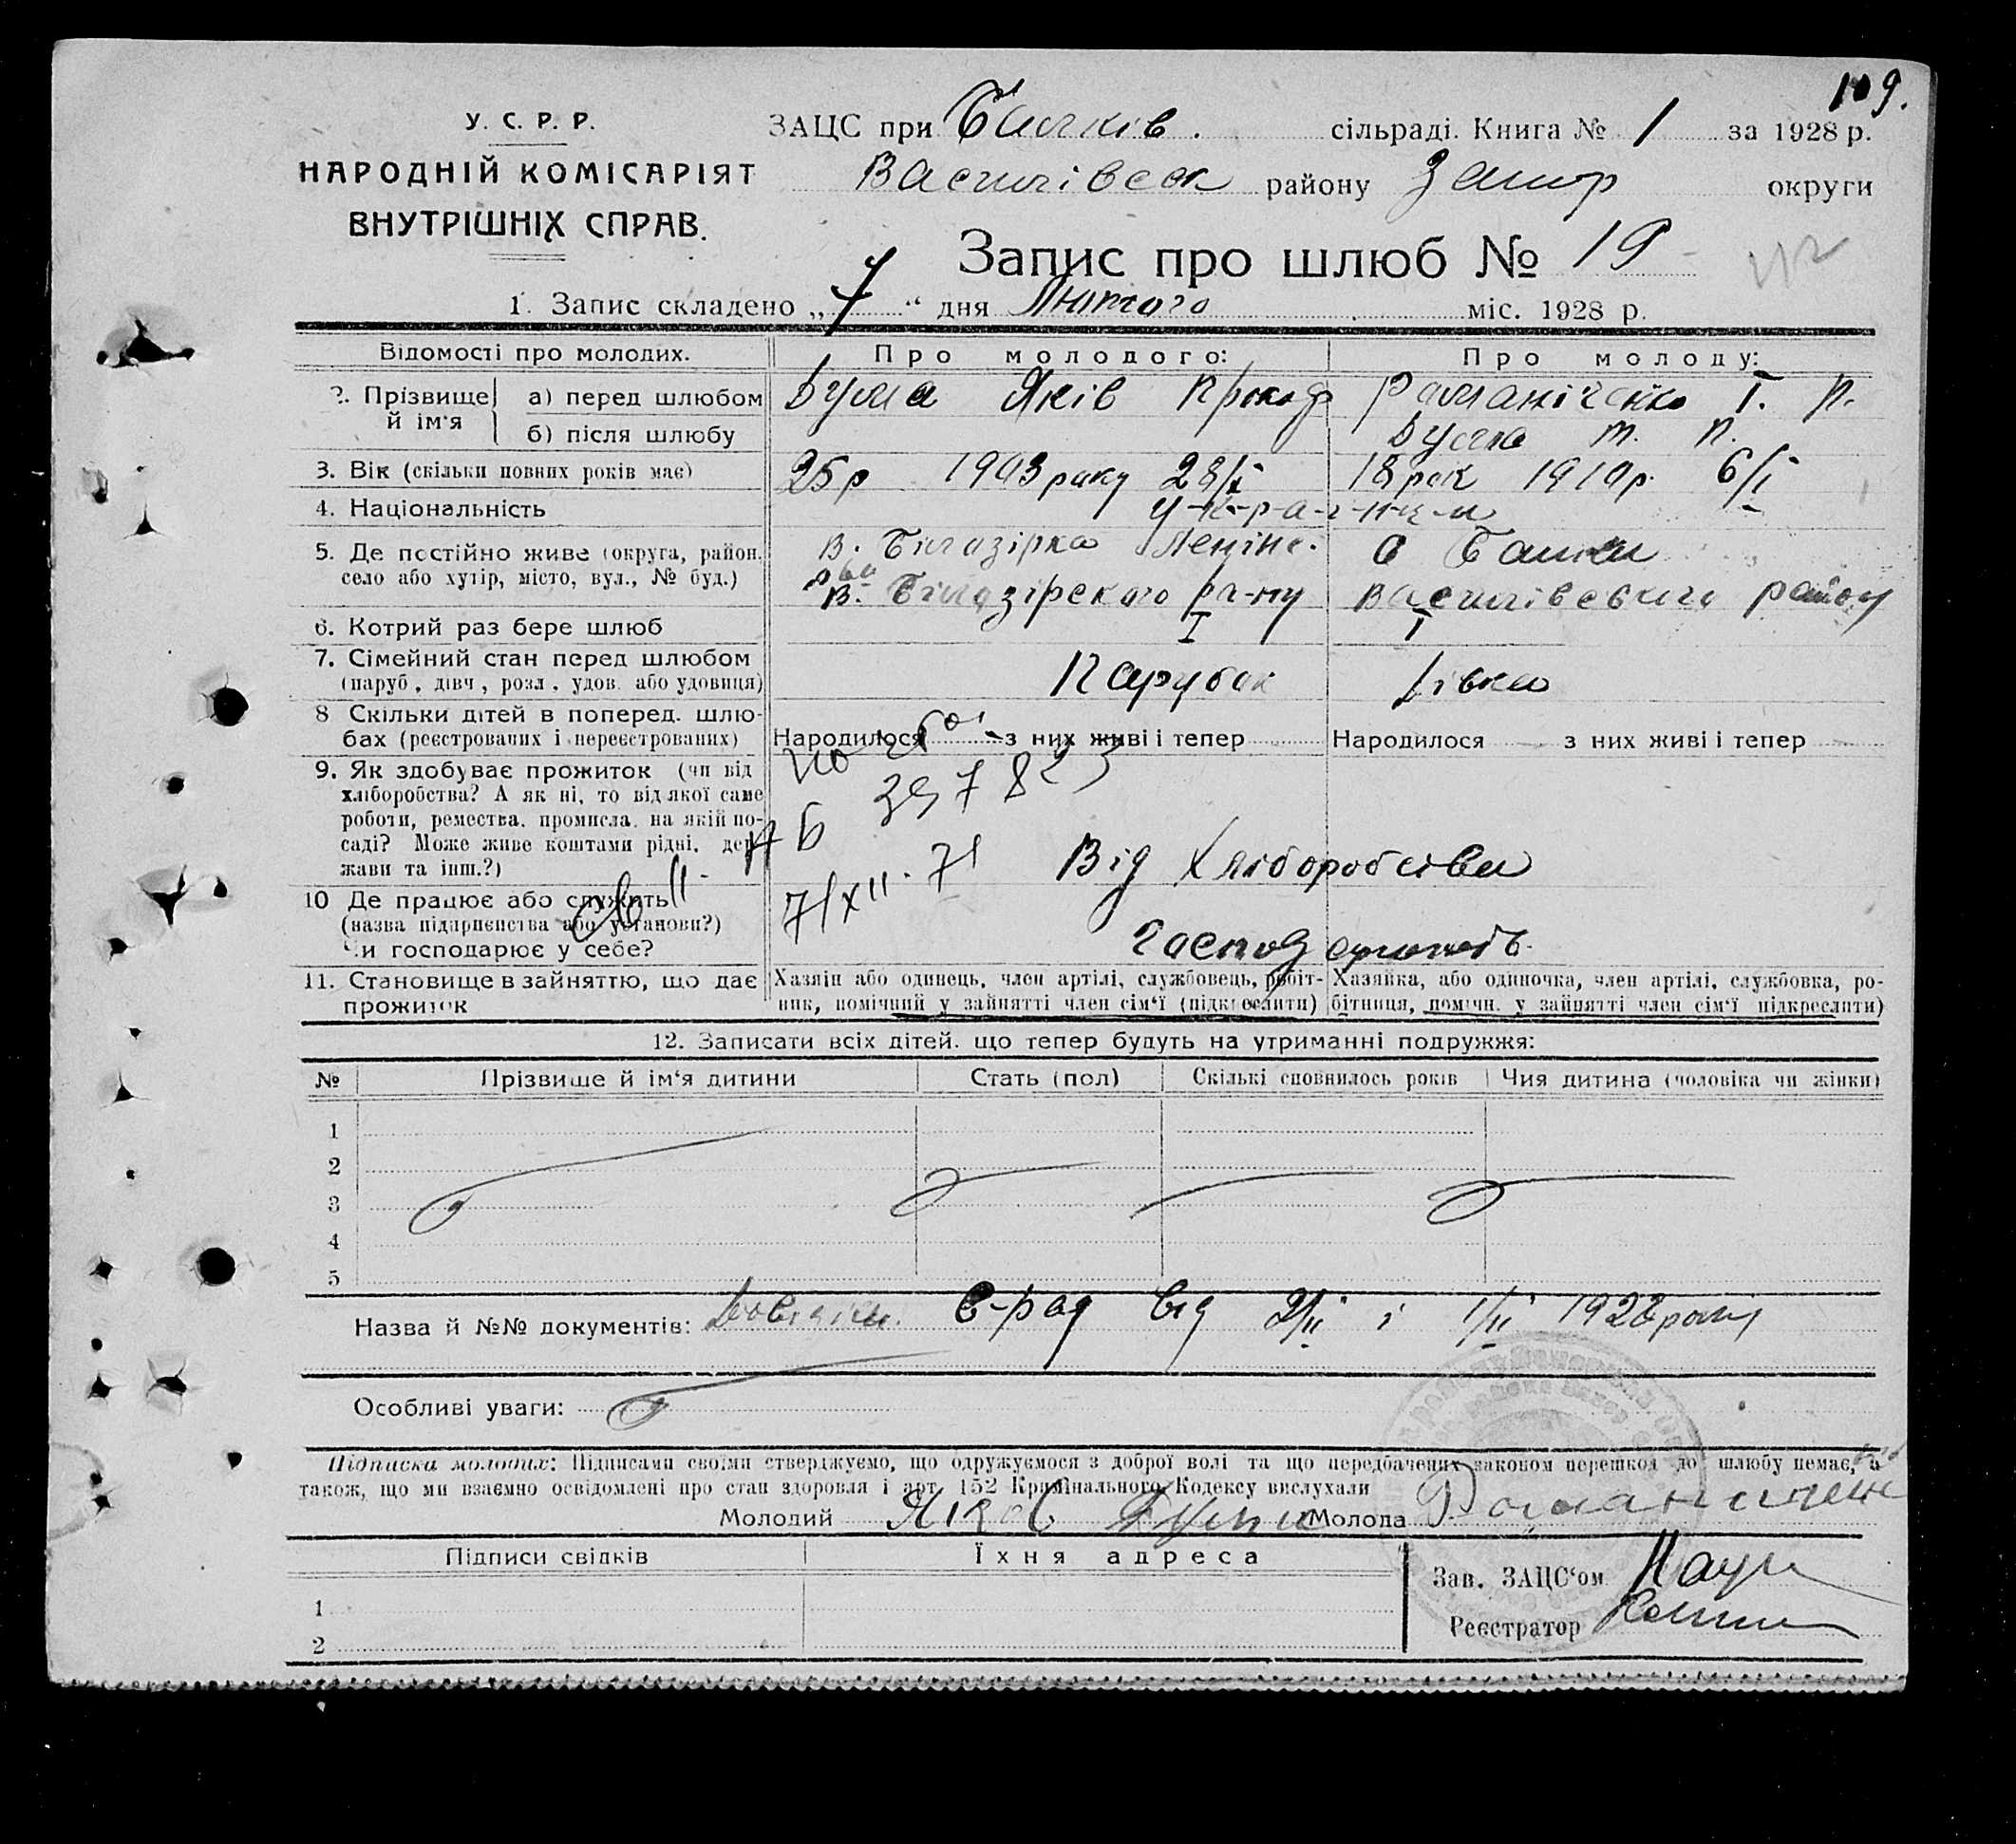 109.
У. С. Р. Р.
НАРОДНІЙ КОМІСАРІЯТ
ВНУТРІШНІХ СПРАВ.
ЗАЦС при Балків. сільраді. Книга № 1 за 1928 р.
Василівськ району Запор округи
Запис про шлюб № 19
1. Запис складено „7“ дня Лютого міс. 1928 р.
Відомості про молодих. Про молодого: Про молоду:
2. Прізвище й ім‘я а) перед шлюбом Яків Проко Романіченко Т. П.
б) після шлюбу Т. П.
3. Вік (скільки повних років має) 25 р 1903 року 28/I 18 рок 1910 р. 6/I
4. Національність У-к-р-а-ї-н-ц-и
5. Де постійно живе (округа, район, В. Білазірка Ленінс. с Балки
село або хутір, місто, вул., № буд.) В. Білазірского ра-ну Василівського району
6. Котрий раз бере шлюб I I
7. Сімейний стан перед шлюбом
(паруб., дівч., розл., удов. або удовиця) Парубок Дівка
8 Скільки дітей в поперед. шлю-
бах (реєстрованих і нереєстрованих) Народилося з них живі і тепер Народилося з них живі і тепер
9. Як здобуває прожиток (чи від
хліборобства? А як ні, то від якої саме
роботи, ремества, промисла, на якій по-
саді? Може живе коштами рідні, дер-
жави та інш.?) Від Хліборобства
397823
7/XII. 71
10 Де працює або служить
(назва підприємства або установи?)
Чи господарює у себе?
11. Становище в зайняттю, що дає
прожиток
Хазяїн або одинець, член артілі, службовець, робіт-
ник, помічний у зайнятті член сім‘ї (підкреслити)
Хазяйка, або одиночка, член артілі, службовка, ро-
бітниця, помічн. у зайнятті член сім‘ї підкреслити)
12. Записати всіх дітей, що тепер будуть на утриманні подружжя:
№ Прізвише й ім‘я дитини Стать (пол) Скількі сповнилось років Чия дитина (чоловіка чи жінки)
1
2
3
4
5
Назва й №№ документів: С-рад від 2/II і 1/II 1928 року
Особливі уваги:
Підписка молодих: Підписами своїми стверджуємо, що одружуємося з доброї волі та що передбачених законом перешкод до шлюбу немає, а
також, що ми взаємно освідомлені про стан здоровля і арт. 152 Кримінального Кодексу вислухали
Молодий Яков Молода
Підписи свідків Їхня адреса
Зав. ЗАЦС‘ом
1
Реєстратор
2